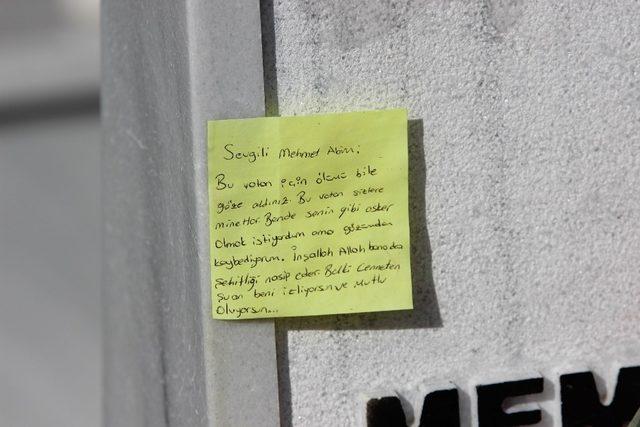 Sevgili Mehmet Abim;
Bu vatan için ölümü bile
göze aldınız. Bu vatan sizlere
minettar. Bende senin gibi asker
Olmak istiyordum ama gözümden
kaybediyorum. İnşallah Allah bana da
Şehitliği nasip eder. Belki Cennetten
şuan beni izliyorsun ve Mutlu
Oluyorsun...